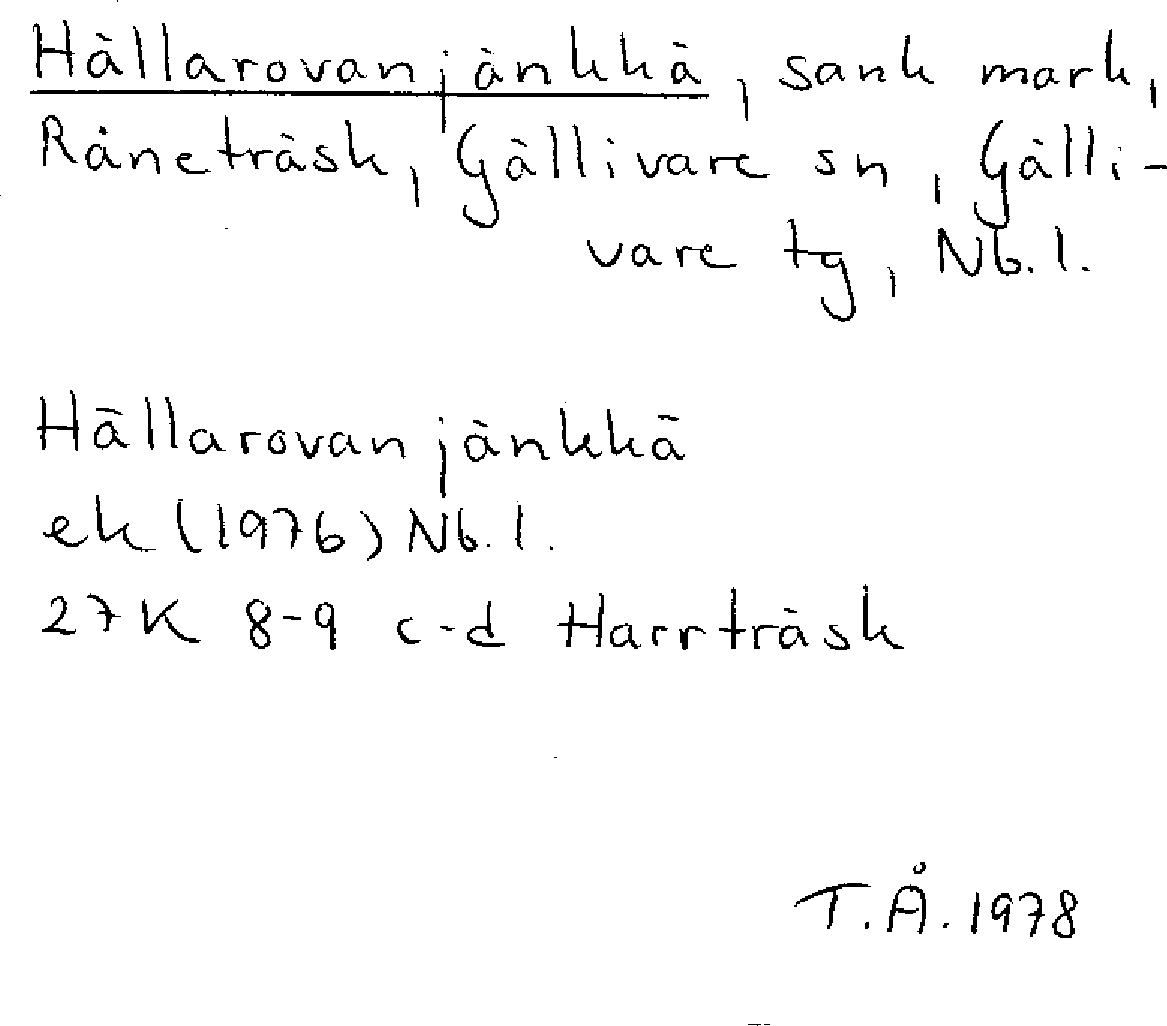 Hällarovanjänkkä, sank mark,
Råneträsk, Gällivare sn, Gälli-
vare tg, Nb. l.
Hällarovanjänkkä
ek (1976) Nb. l.
27K 8-9 c-d Harrträsk
T.Å. 1978